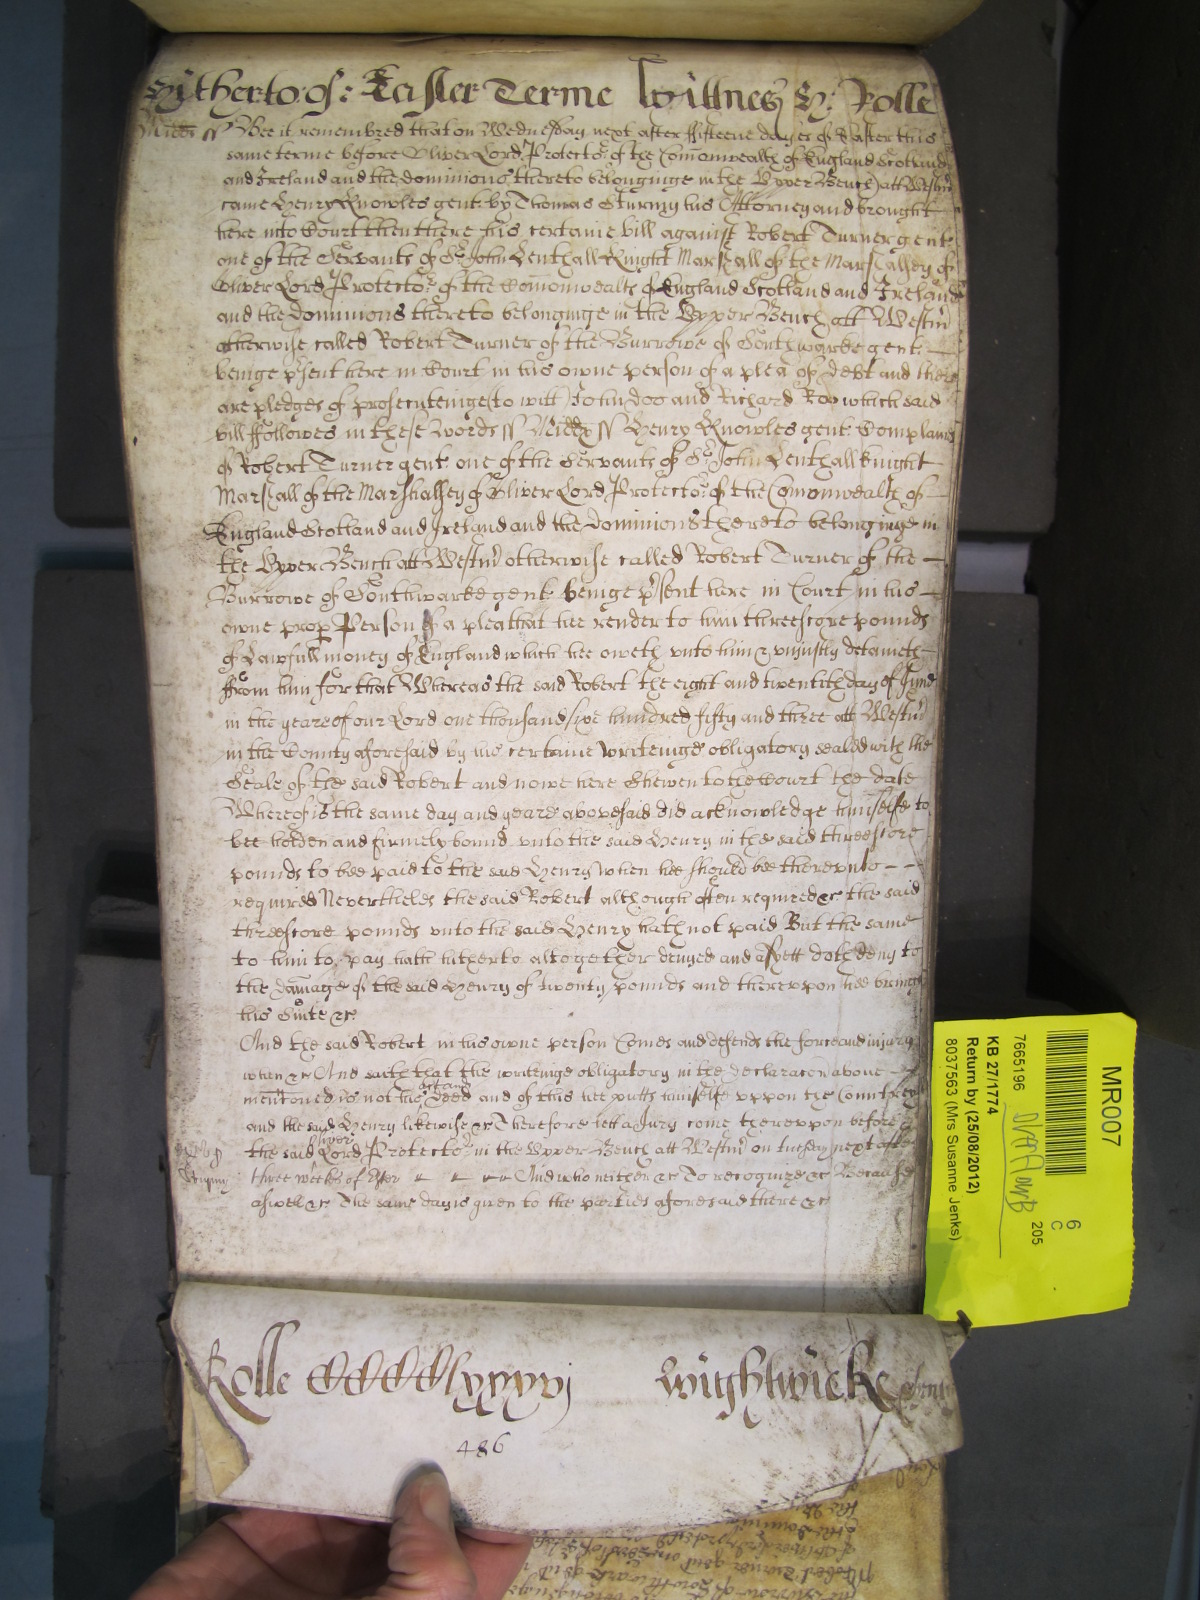 Hitherto of: Easter Terme Wittnes H: Rolle
Midd ss Bee it remembred that on Wednesday next after fifteene dayes of Easter this
same terme before Oliver Lord Protector of the Comonwealth of England Scotland
and Ireland and the dominions thereto belonginge in the Upper Bench att Westmr
came Henry Knowles gent by Thomas Sturmy his Attorney and brought
here into Court then there his certaine bill against Robert Turner gent
one of the Servants of Sr John Lenthall Knight Marshall of the Marshalsey of
Oliver Lord Protector of the Comonwealth of England Scotland and Ireland
and the dominions thereto belonginge in the Upper Bench att Westmr
otherwise called Robert Turner of the Burrowe of Southwarke gent
beinge psent here in Court in his owne person of a plea of debt and there
are pledges of prosecuteinge (to witt) John Doo and Richard Roo which said
bill ffollowes in these words ss Middx ss Henry Knowles gent Complaines
of Robert Turner gent one of the Servants of Sr John Lenthall knight
Marshall of the Marshallsey of Oliver Lord Protector of the Comonwealth of
England Scotland and Ireland and the dominions thereto belonginge in
the Upper Bench att Westmr otherwise called Robert Turner of the
Burrowe of Southwarke gent beinge psent here in Court in his
owne proper Person of a plea that hee render to him threescore pounds
of Lawfull money of England which hee oweth unto him & unjustly detaineth
ffrom him for that Whereas the said Robert the eight and twentith day of June
in the yeare of our Lord one thousand sixe hundred fifty and three att Westmr
in the County aforesaid by his certaine writeinge obligatory sealed with the
Seale of the said Robert and nowe here shewen to the Court the date
Whereof is the same day and yeare abovesaid did acknowledge himselfe to
bee holden and firmely bound unto the said Henry in the said threescore
pounds to bee paid to the said Henry when hee should bee thereunto
required Neverthelesse the said Robert although often required &c the said
threescore pounds unto the said Henry hath not paid But the same
to him to pay hath hitherto altogether denyed and as yett doth deny to
the damage of the said Henry of twenty pounds and thereupon hee brings
this Suite &c
And the said Robert in his owne person Comes and defends the force and injury
when &c And saith that the writeinge obligatory in the declaracon above
mentioned is not his Deed and of this hee putts himselfe uppon the Countrey
and the said Henry likewise &c Therefore lett a Jury come thereupon before
the said Oliver Lord Protector in the Upper Bench att Westmr on tuesday next after
three weekes of Ester And who neither &c To recognize &c Because
aswell &c The same day is given to the parties aforesaid there &c
Rolle CCCClxxxvj Wightwicke
486
MR007
7665196
KB 27/1774
Return by (25/08/2012)
8037563 (Mrs Susanne Jenks)
6
C
205